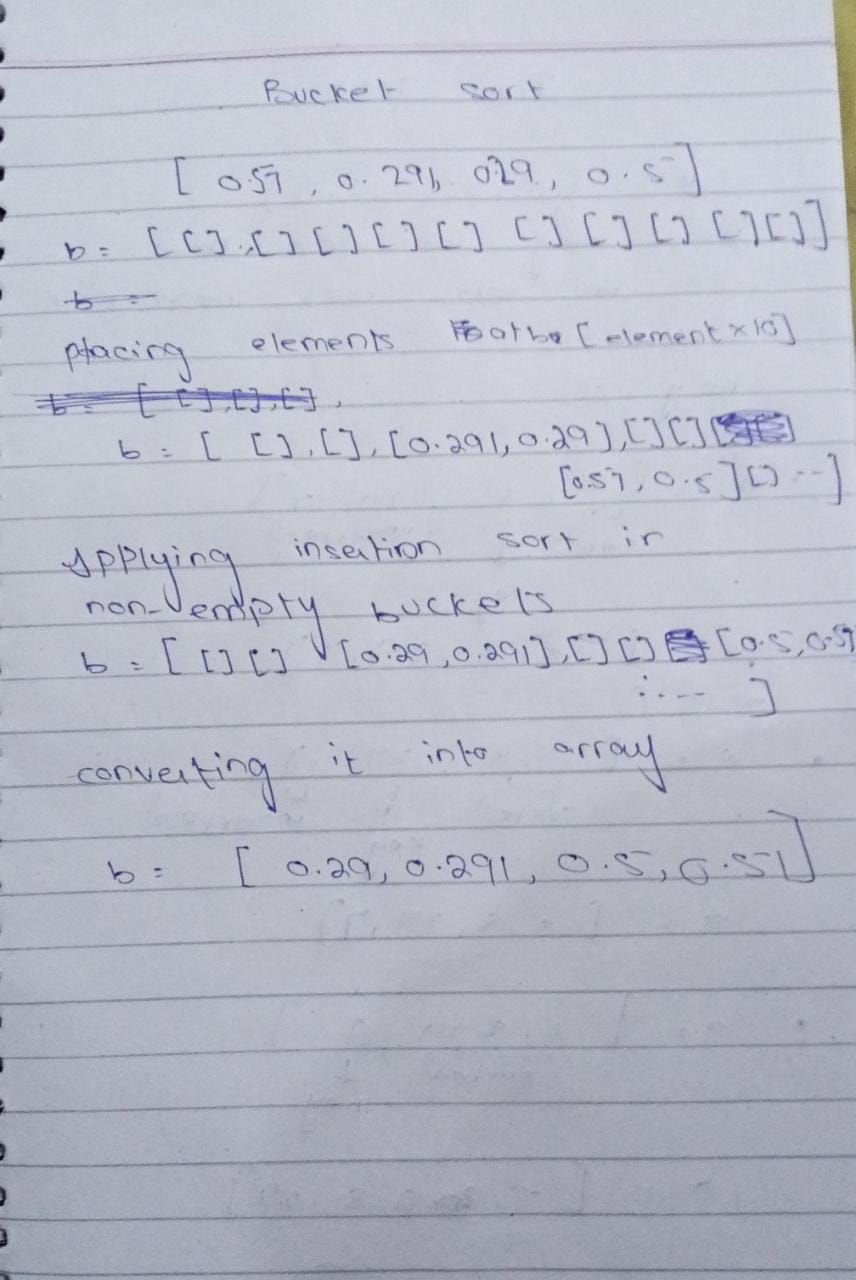 Bucket sort
[ 0.57, 0.291, 0.29, 0.5 ]
b = [ [], [] [] [] [] [] [] [] [] [] ]
b =
placing elements at b [element x 10]
b = [ [], [], [],
b = [ [], [], [0.291, 0.29], [] []
[0.57, 0.5] [] -- ]
Applying insertion sort in
non-empty buckets
b = [ [] [] [0.29, 0.291], [] [] [0.5, 0.57
---- ]
converting it into array
b = [ 0.29, 0.291, 0.5, 0.57]